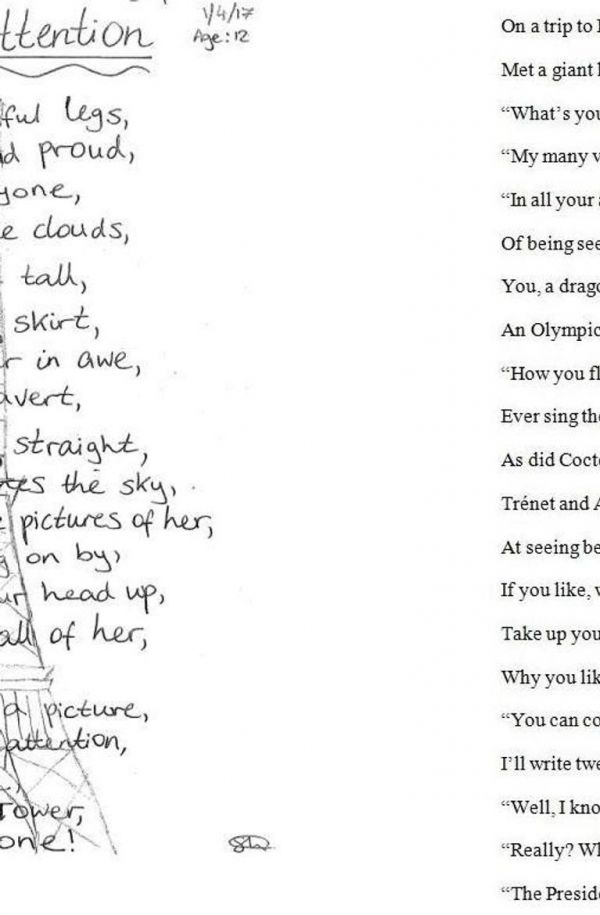 ttention
1/4/17
Age: 12
ful legs,
d proud,
yone,
e clouds,
tall,
skirt,
r in awe,
vert,
straight,
es the sky,
pictures of her,
g on by,
ur head up,
all of her,
a picture,
attention,
Tower,
one!
On a trip to
Met a giant
“What’s you
“My many v
“In all your
Of being see
You, a drago
An Olympic
“How you fl
Ever sing the
As did Cocte
Trénet and A
At seeing be
If you like, v
Take up you
Why you lik
“You can co
I’ll write twe
“Well, I kno
“Really? Wh
“The Preside